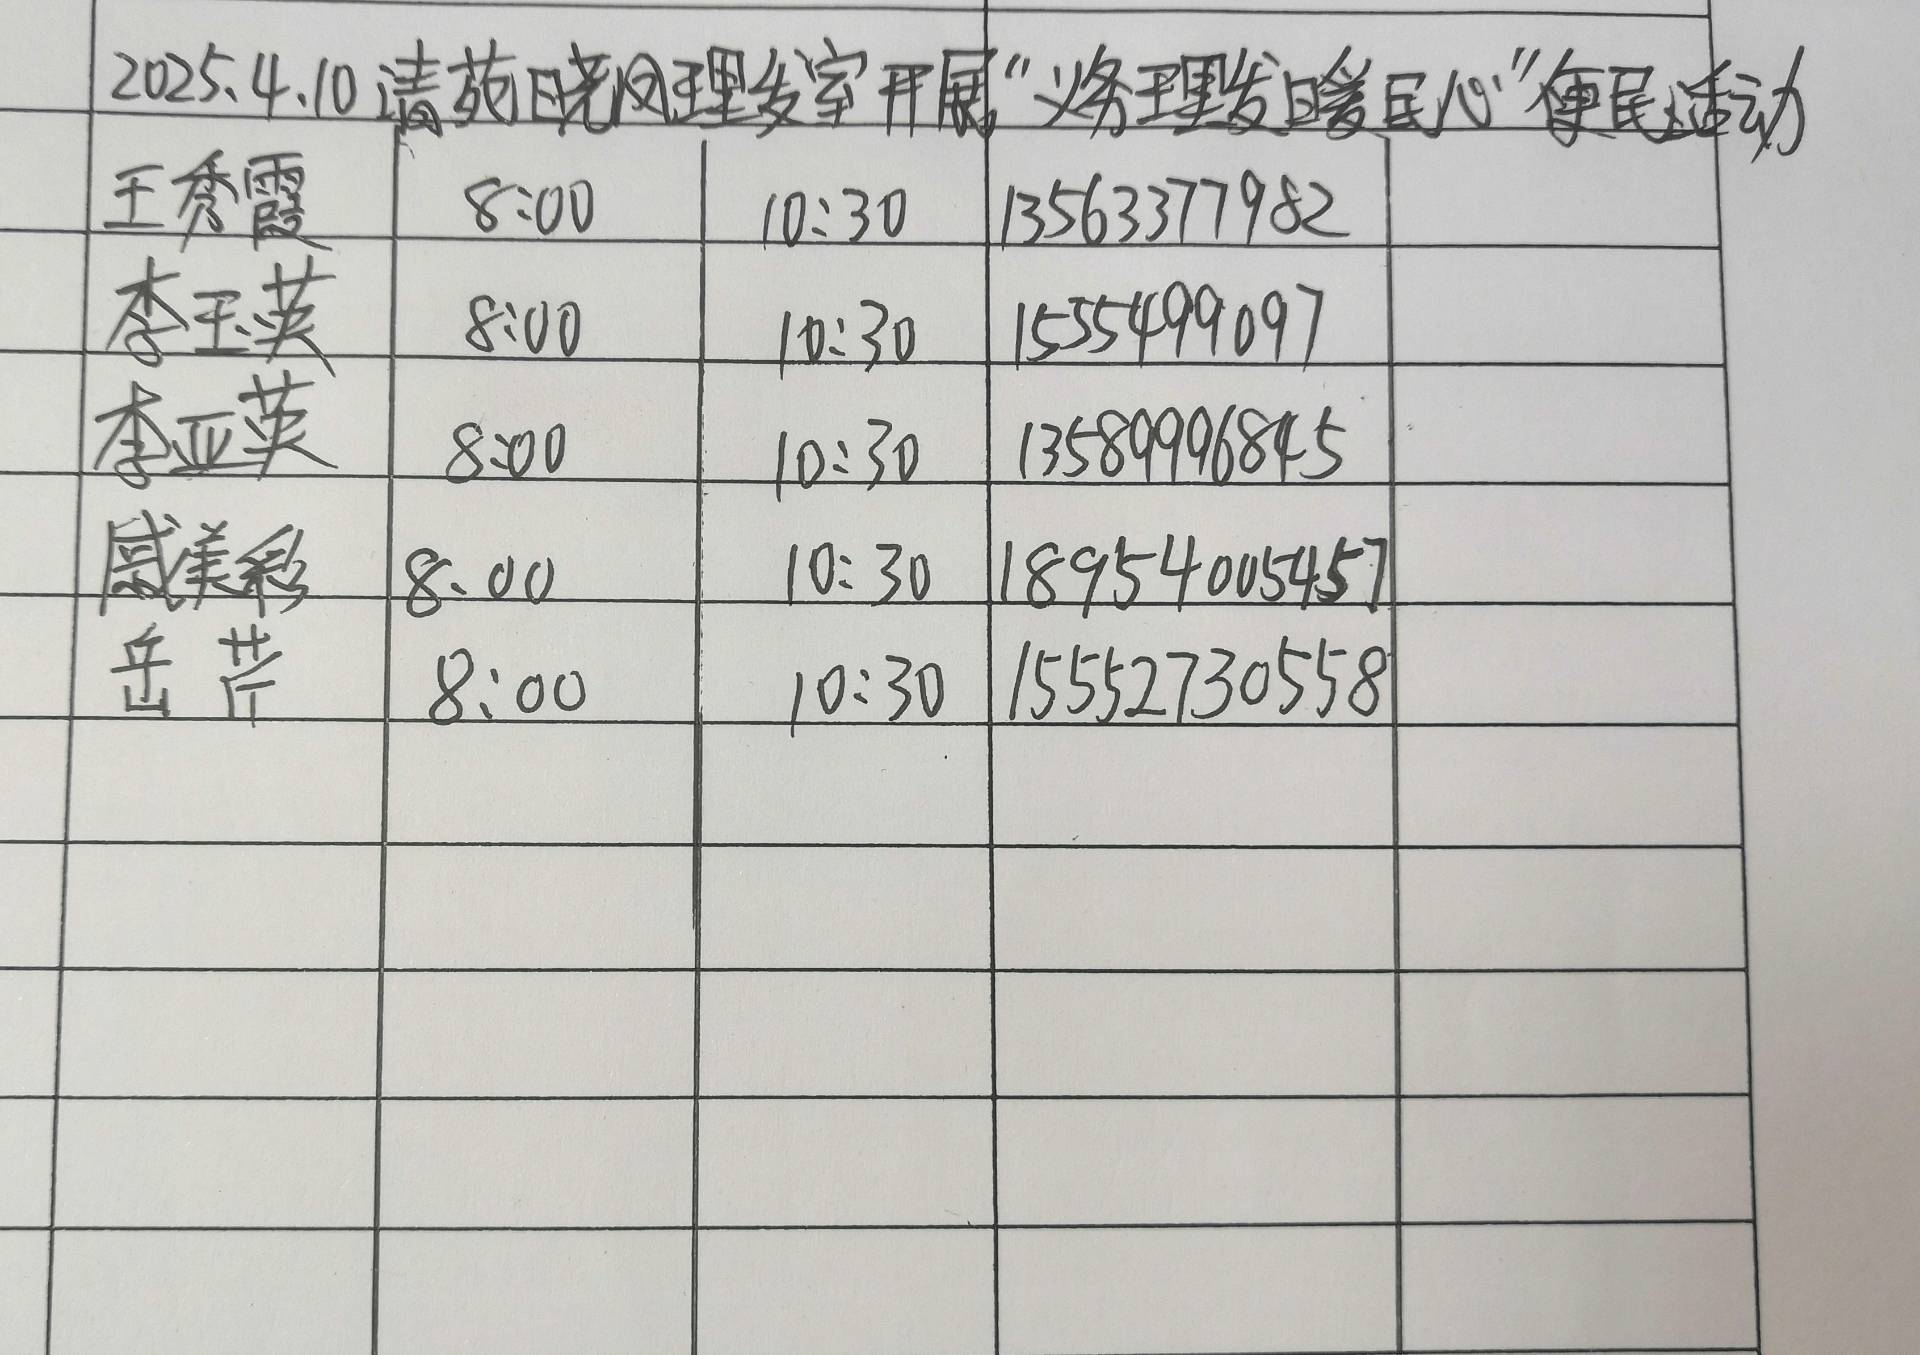 2025.4.10清苑晓风理发室开展“义务理发暖民心”便民活动
王秀霞 8:00 10:30 13563377982
李玉英 8:00 10:30 1555499097
李亚英 8:00 10:30 13589996845
戚美彩 8:00 10:30 18954005457
岳芹 8:00 10:30 15552730558